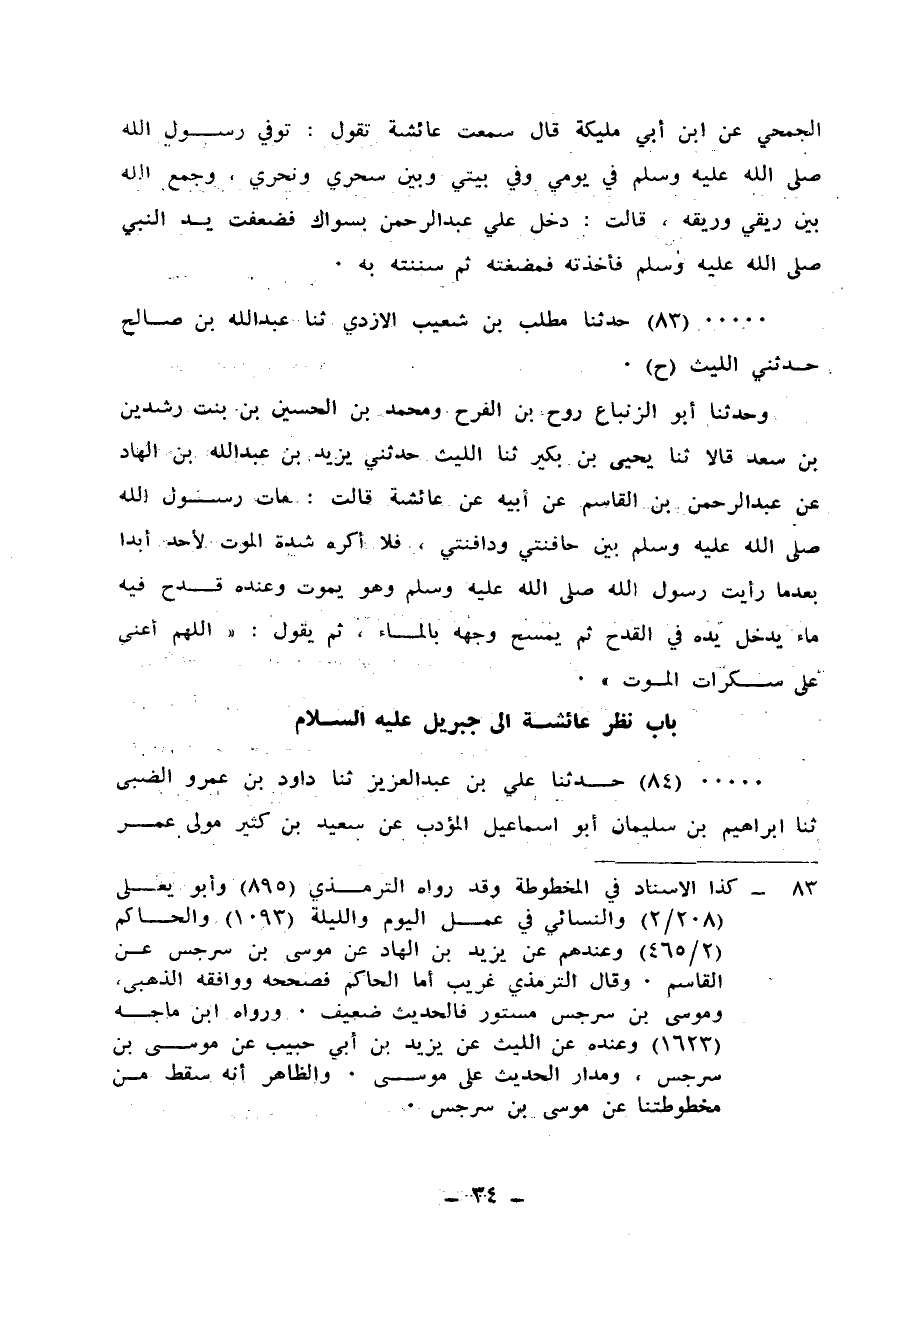 الجمحي عن ابن أبي مليكة قال سمعت عائشة تقول : توفي رسول الله
صلى الله عليه وسلم في يومي وفي بيتي وبين سحري ونحري ، وجمع الله
بين ريقي وريقه ، قالت : دخل علي عبدالرحمن بسواك فضعفت يد النبي
صلى الله عليه وسلم فأخذته فمضغته ثم سننته به ٠
٠٠٠٠٠ (٨٣) حدثنا مطلب بن شعيب الازدي ثنا عبدالله بن صالح
حدثني الليث (ح) ٠
وحدثنا أبو الزنباع روح بن الفرح ومحمد بن الحسين بن بنت رشدين
بن سعد قالا ثنا يحيى بن بكير ثنا الليث حدثني يزيد بن عبدالله بن الهاد
عن عبدالرحمن بن القاسم عن أبيه عن عائشة قالت : مات رسول الله
صلى الله عليه وسلم بين حاقنتي وداقنتي ، فلا أكره شدة الموت لأحد أبدا
بعدما رأيت رسول الله صلى الله عليه وسلم وهو يموت وعنده قدح فيه
ماء يدخل يده في القدح ثم يمسح وجهه بالماء ، ثم يقول : « اللهم أعني
على سكرات الموت » ٠
باب نظر عائشة الى جبريل عليه السلام
٠٠٠٠٠ (٨٤) حدثنا علي بن عبدالعزيز ثنا داود بن عمرو الضبى
ثنا ابراهيم بن سليمان أبو اسماعيل المؤدب عن سعيد بن كثير مولى عمر
٨٣ ـ كذا الاسناد في المخطوطة وقد رواه الترمذي (٨٩٥) وأبو يعلى
(٢/٢٠٨) والنسائي في عمل اليوم والليلة (١٠٩٣) والحاكم
(٤٦٥/٢) وعندهم عن يزيد بن الهاد عن موسى بن سرجس عن
القاسم ٠ وقال الترمذي غريب أما الحاكم فصححه ووافقه الذهبي،
وموسى بن سرجس مستور فالحديث ضعيف ٠ ورواه ابن ماجه
(١٦٢٣) وعنده عن الليث عن يزيد بن أبي حبيب عن موسى بن
سرجس ، ومدار الحديث على موسى ٠ والظاهر أنه سقط من
مخطوطتنا عن موسى بن سرجس ٠
ـ ٣٤ ـ